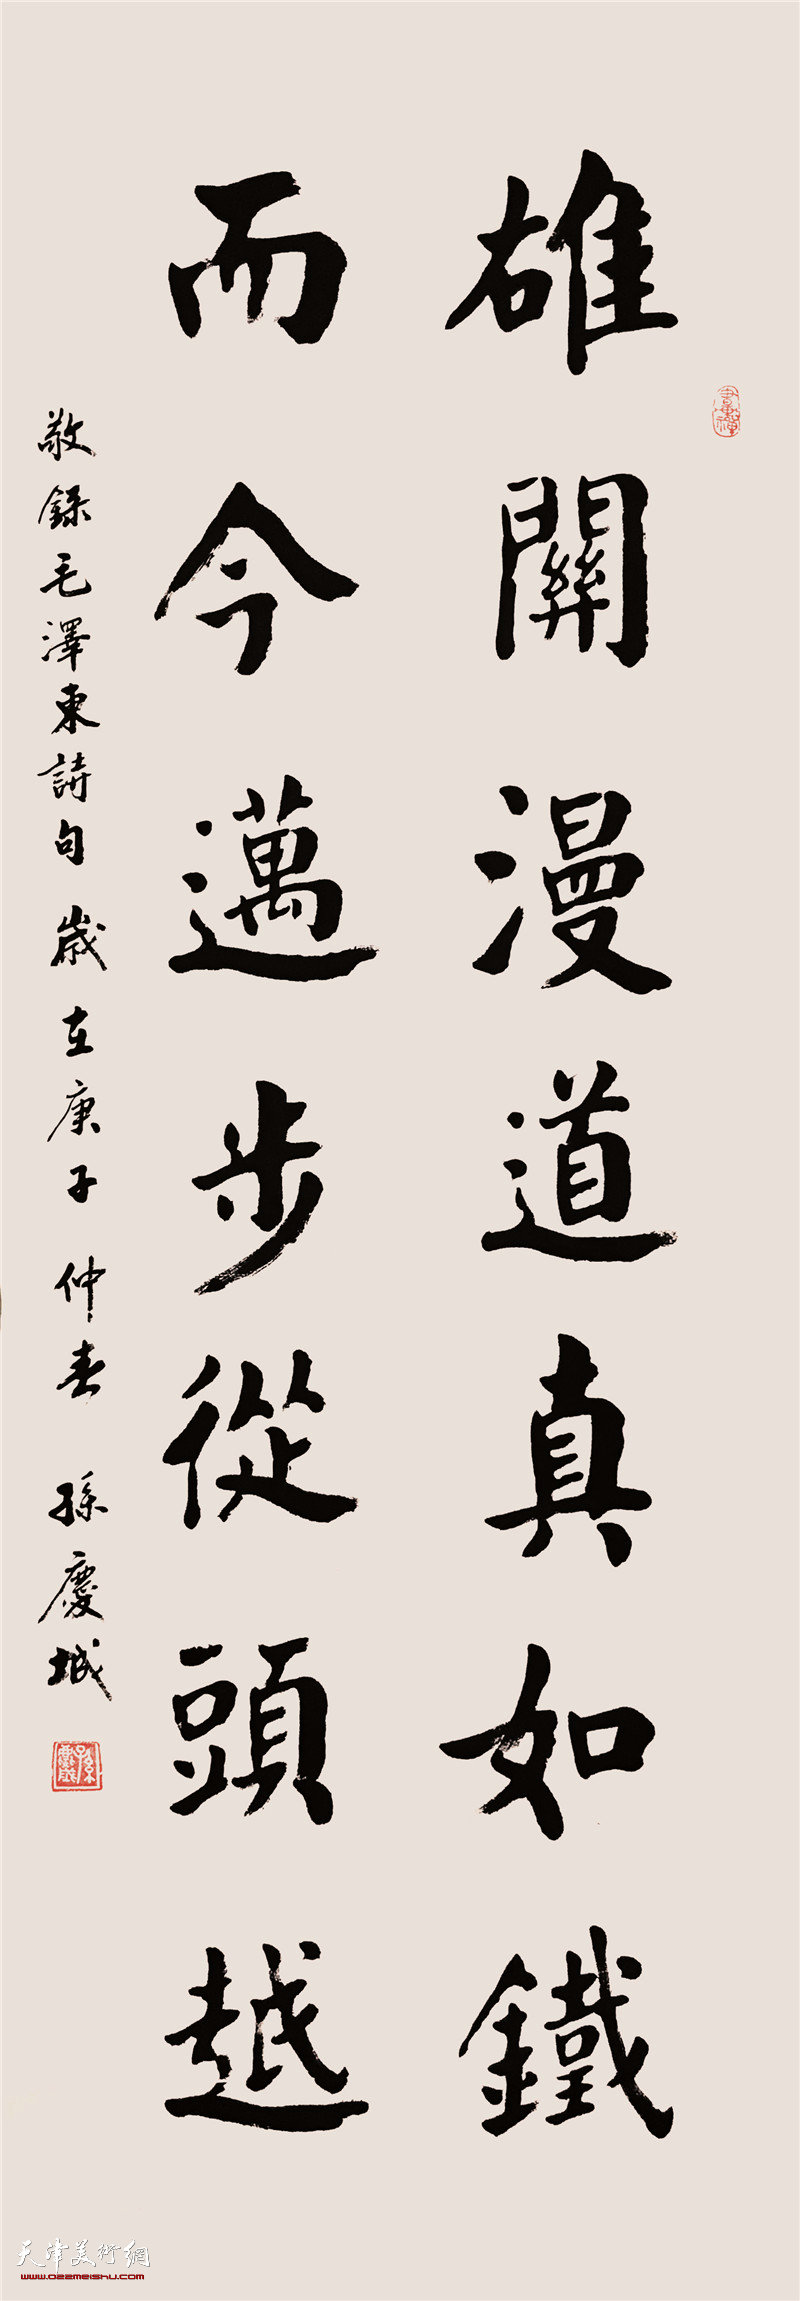 雄關漫道真如鐵
而今邁步從頭越
敬録毛澤東詩句 歲在庚子 仲春 孫慶城
天津美術網
www.022meishu.com